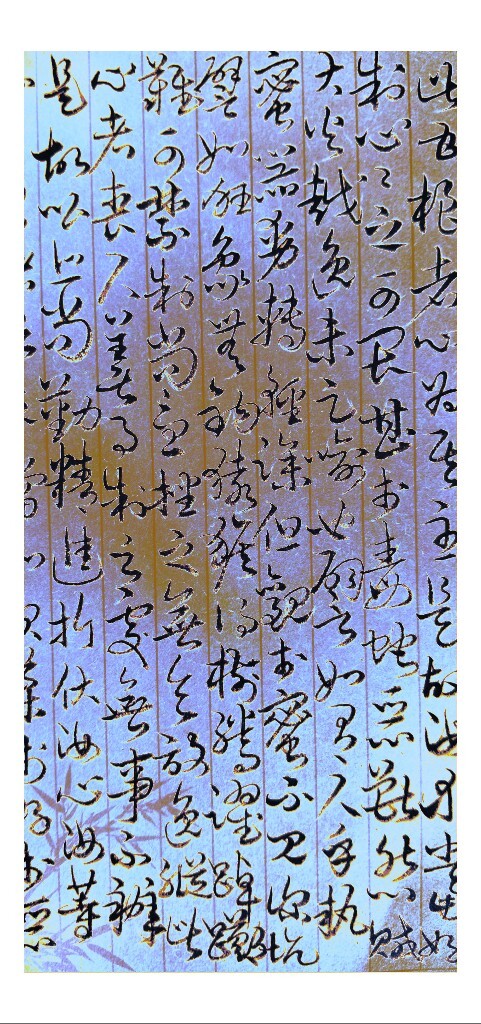 此五根者心為其主是故汝等當好
制心心之可畏甚於毒蛇惡獸怨賊
大火越逸未足喻也譬如有人手執
蜜器動轉輕躁但觀於蜜不見深坑
譬如狂象無鉤猿猴得樹騰躍踔躑
難可禁制當急挫之無令放逸縱此
心者喪人善事制之一處無事不辦
是故比丘當勤精進折伏汝心汝等
當如服藥於好於惡